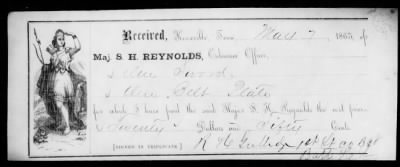 Received, Knoxville, Tenn. May 7 1863, of
Maj. S. H. REYNOLDS, Ordnance Officer,
1 One Sword
1 One Belt Plate
for which I have paid the said Major S. H. Reynolds the net price
$ Twenty Dollars and Fifty Cents.
[SIGNED IN TRIPLICATE.] R H 1st Lt